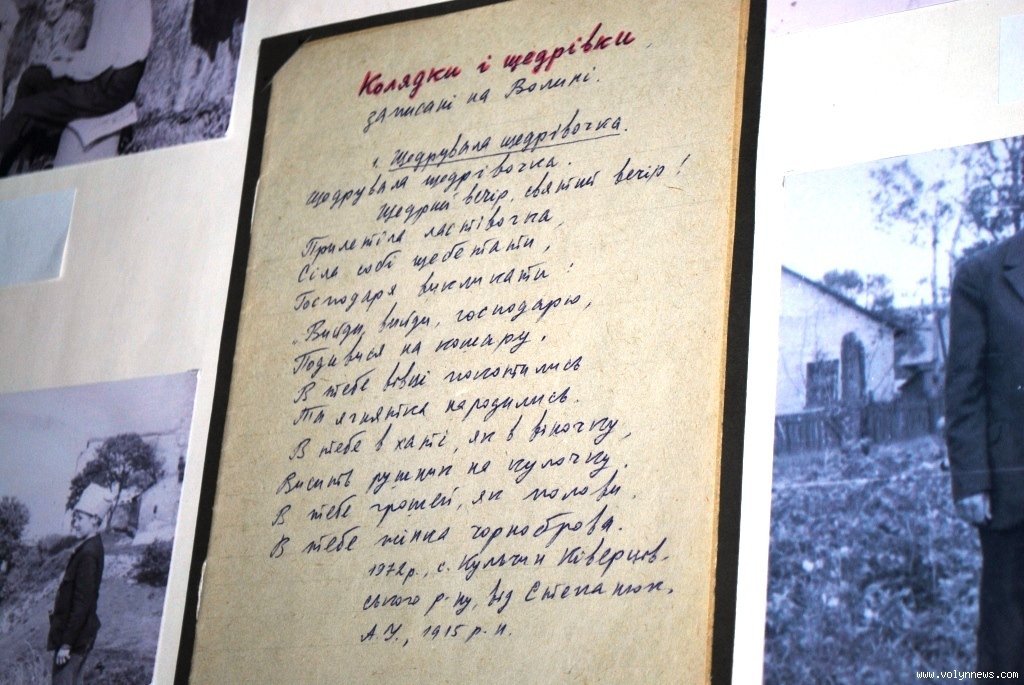 Колядки і щедрівки
записані на Волині.
1. Щедрувала щедрівочка.
Щодрувала щедрівочка.
Щедрий вечір, святий вечір!
Прилетіла ластівочка,
Сіла собі щебетати,
Господаря викликати:
„Вийди, вийди, господарю,
Подивися на кошару.
В тебе вівці покотились
Та ягнятка народились.
В тебе в хаті, як в віночку,
Висить рушник на кулочку.
В тебе грошей, як полови,
В тебе жінка чорноброва.
1972 р., с. Кульчин Ківерців-
ського р-ну, від Степанюк
А.У., 1915 р.н.
www.volynnews.com